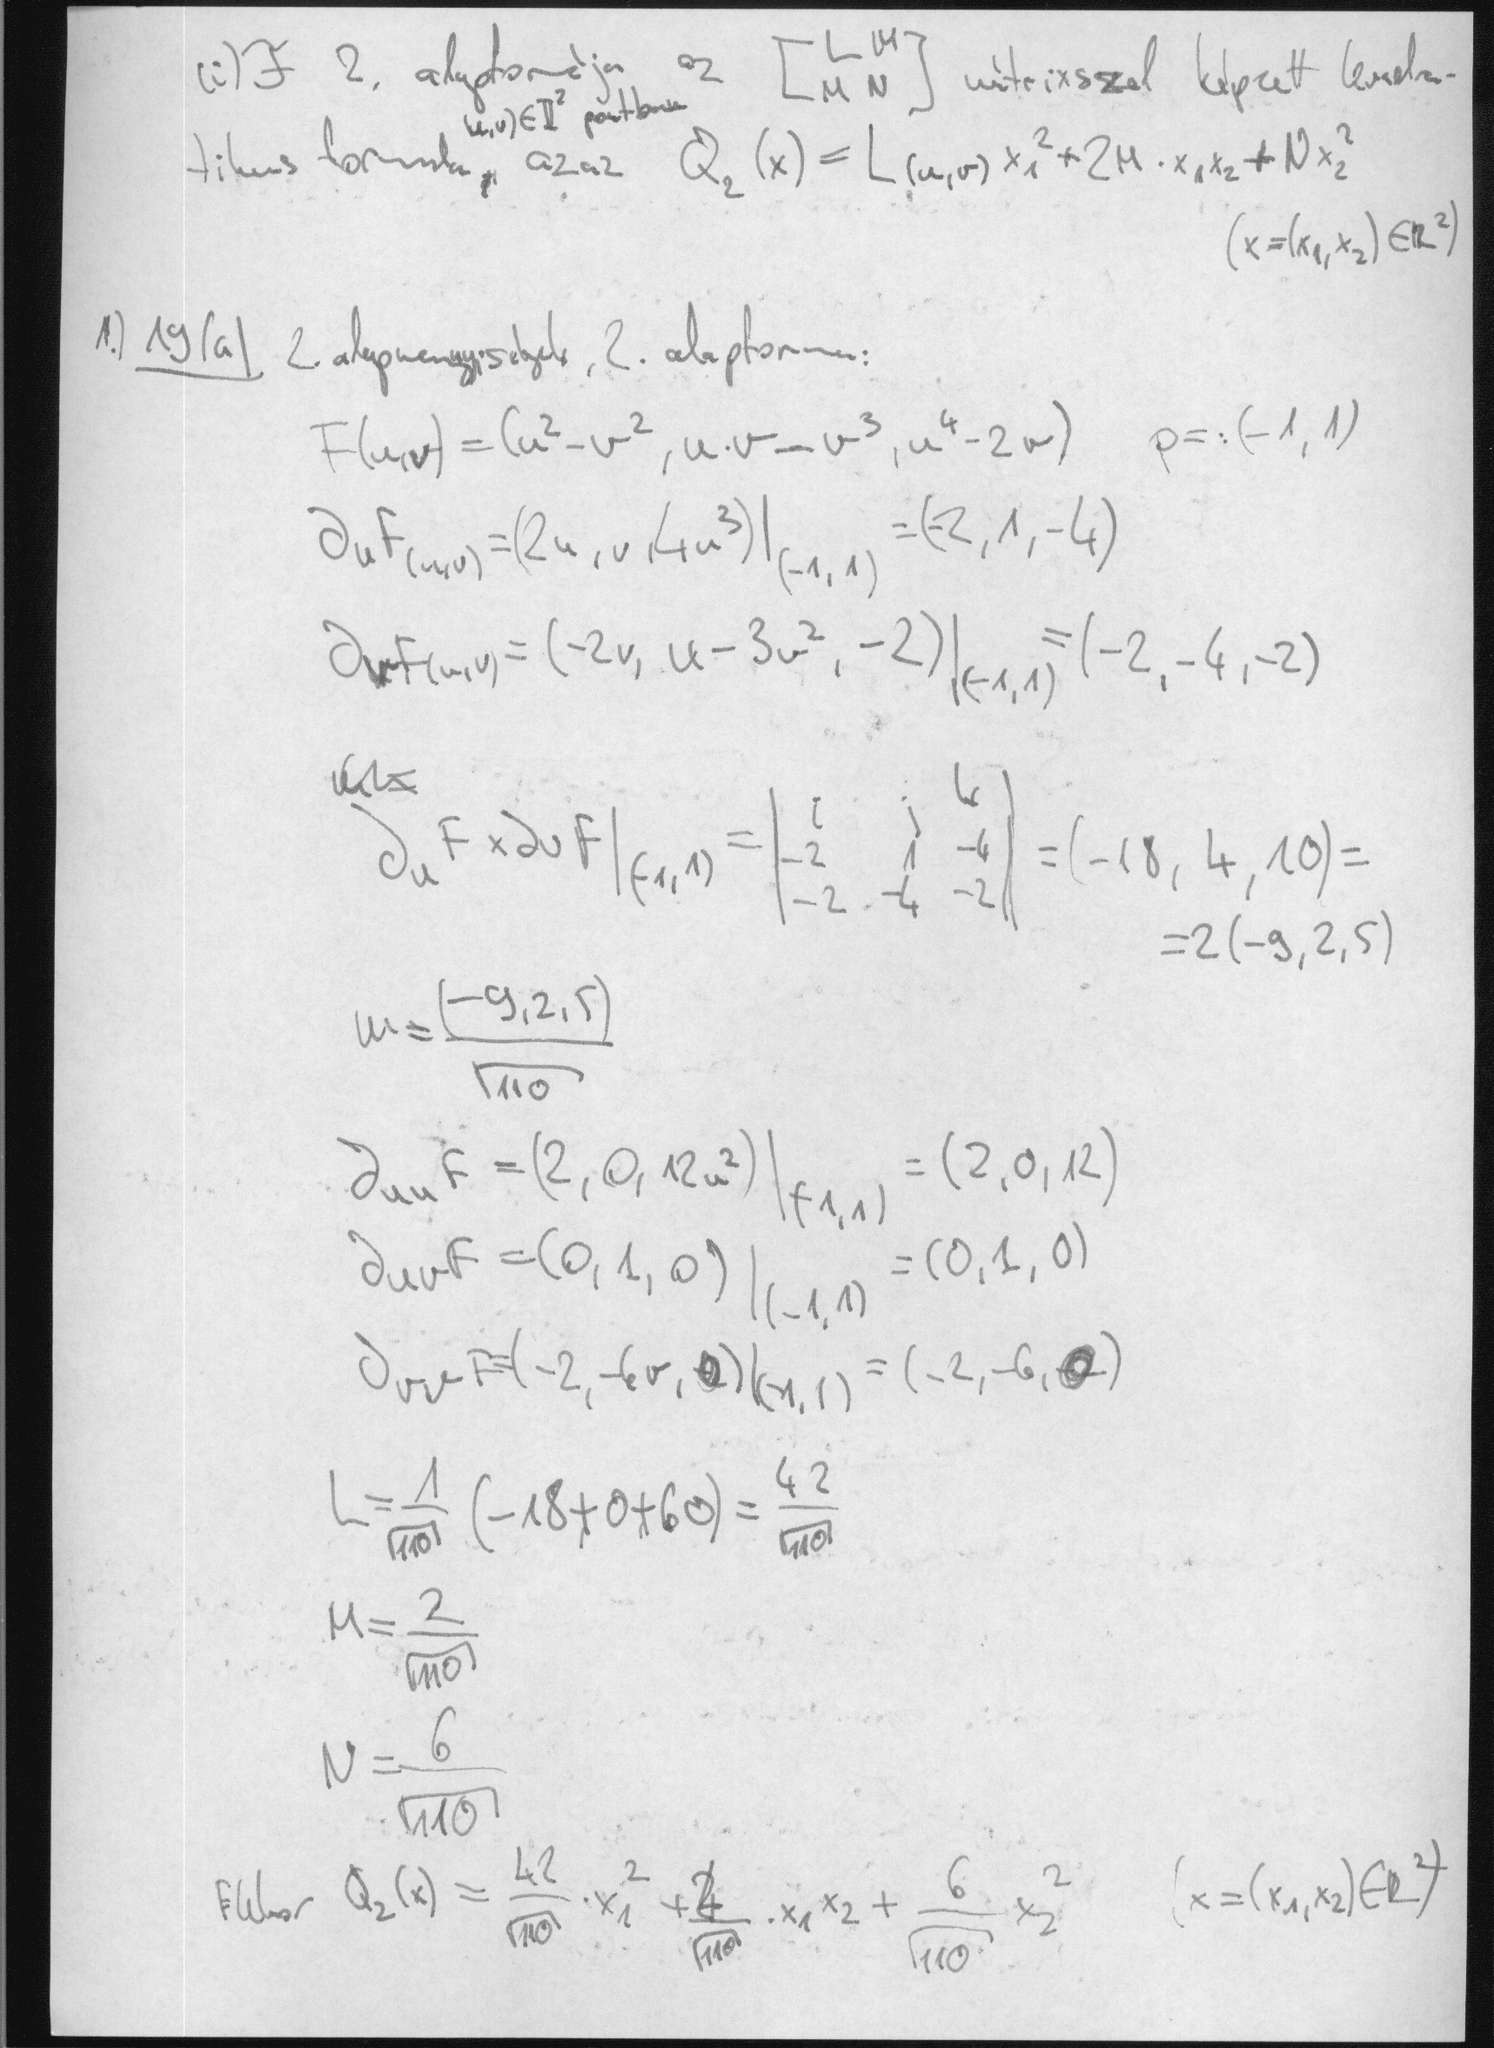 (i) F 2. alapformája az [L M
M N] mátrixszal képzett kvadra-
(u,v)∈I² pontban
tikus formula, azaz Q₂(x) = L(u,v) x₁² + 2M · x₁x₂ + N x₂²
(x=(x₁,x₂)∈ℝ²)
1.) 19(a) 2. alapmennyiségek, 2. alapforma:
F(u,v) = (u²-v², u·v-v³, u⁴-2v) p=:(-1,1)
∂uF(u,v) = (2u, v, 4u³)|(-1,1) = (-2, 1, -4)
∂vF(u,v) = (-2v, u-3v², -2)|(-1,1) = (-2, -4, -2)
∂uF × ∂vF|(-1,1) = |i j k
-2 1 -4
-2 -4 -2| = (-18, 4, 10) =
= 2(-9, 2, 5)
m = (-9,2,5)/√110
∂uuF = (2, 0, 12u²)|(-1,1) = (2, 0, 12)
∂uvF = (0, 1, 0)|(-1,1) = (0, 1, 0)
∂vvF = (-2, -6v, 0)|(-1,1) = (-2, -6, 0)
L = 1/√110 (-18+0+60) = 42/√110
M = 2/√110
N = 6/√110
Ekkor Q₂(x) = 42/√110 · x₁² + 4/√110 · x₁x₂ + 6/√110 x₂² (x=(x₁,x₂)∈ℝ²)